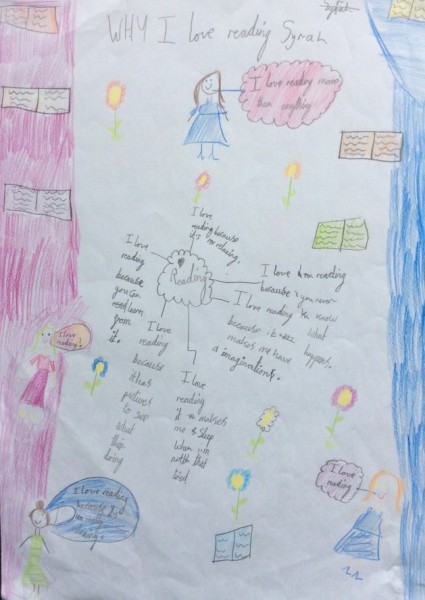 WHY I love reading Syrah
I love reading more
than anything
I love
reading because
it's relaxing.
Reading
I love
reading
because
you can
learn
from
it.
I love reading
because you never
know
what
happens.
I love reading
because it
makes me have
a imaginations.
I love
reading
because
it has
pictures
to see
what
ther
doing
I love
reading
it makes
me sleep
when i'm
not that
tired
I love
reading!
I love reading
because
I love
reading